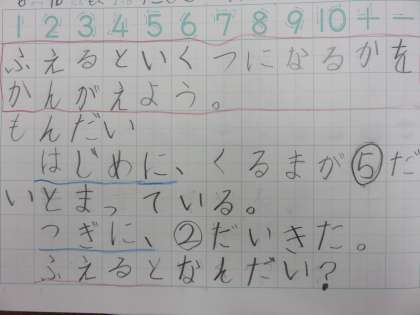 1 2 3 4 5 6 7 8 9 10 + −
ふえるといくつになるかを
かんがえよう。
もんだい
はじめに、くるまが⑤だ
いとまっている。
つぎに、②だいきた。
ふえるとなんだい?